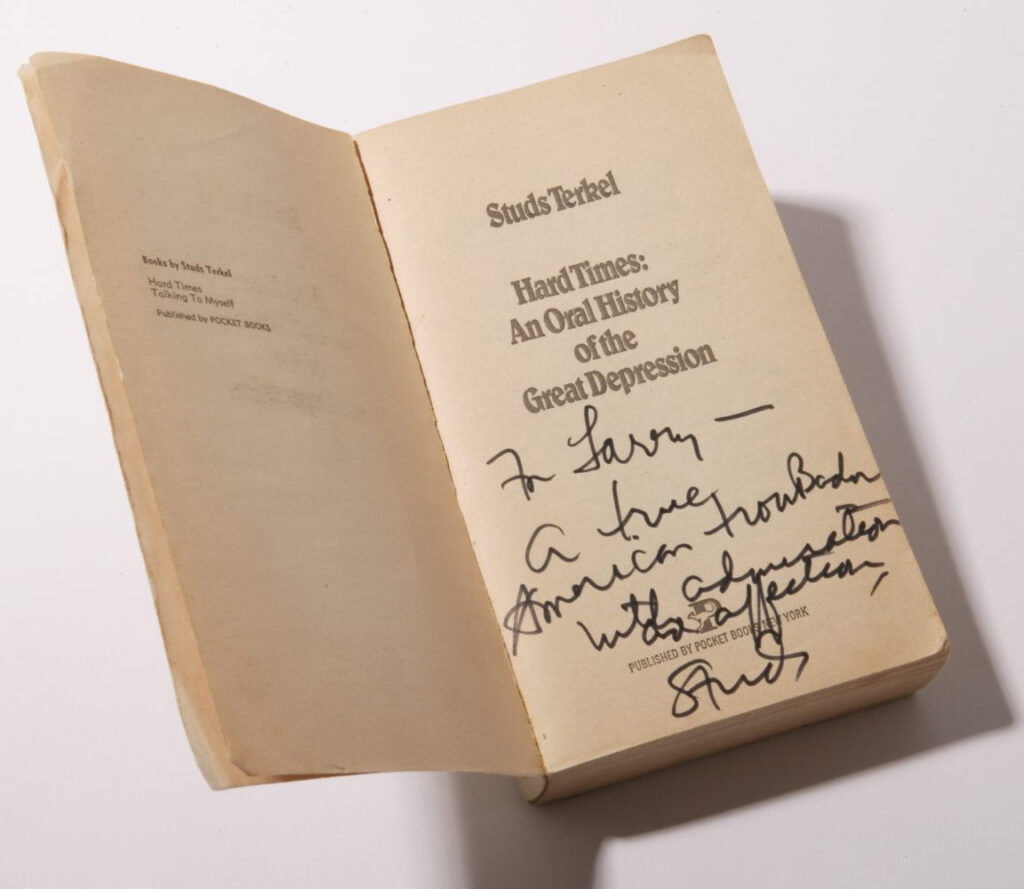 Books by Studs Terkel
Hard Times
Talking To Myself
Published by POCKET BOOKS
Studs Terkel
Hard Times:
An Oral History
of the
Great Depression
For Larry —
A true
American trouBador
with admiration
& affection,
PUBLISHED BY POCKET BOOKS NEW YORK
Studs